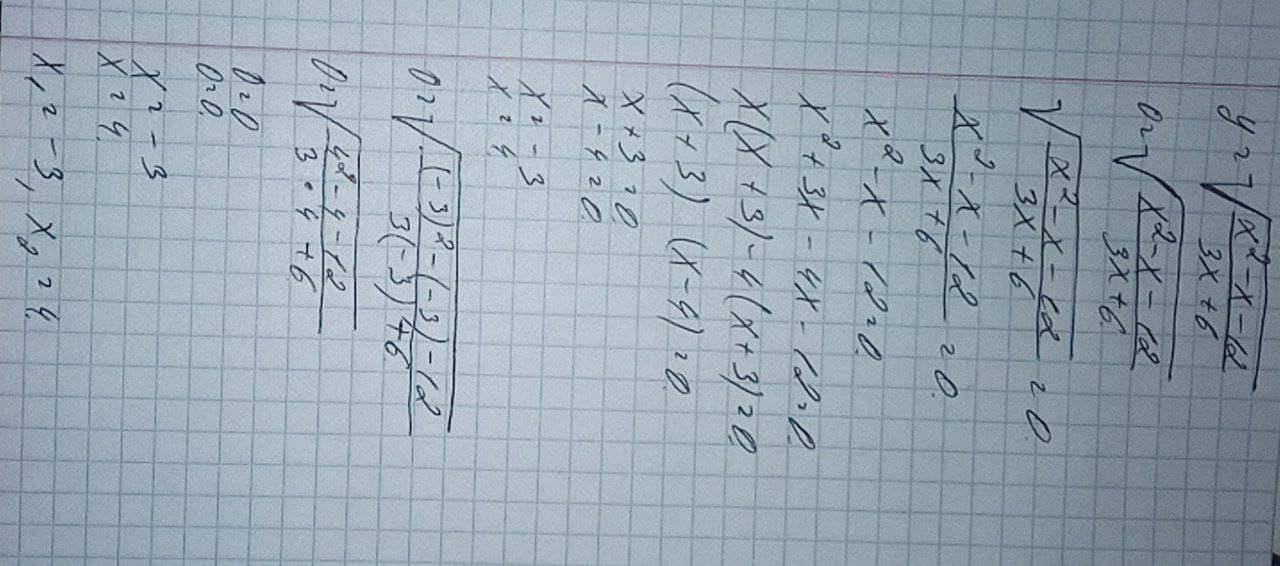 y = √((x² - x - 12)/(3x + 6))
0 = √((x² - x - 12)/(3x + 6))
√((x² - x - 12)/(3x + 6)) = 0
(x² - x - 12)/(3x + 6) = 0
x² - x - 12 = 0
x² + 3x - 4x - 12 = 0
x(x + 3) - 4(x + 3) = 0
(x + 3) (x - 4) = 0
x + 3 = 0
x - 4 = 0
x = -3
x = 4
0 = √(((-3)² - (-3) - 12)/(3(-3) + 6))
0 = √((4² - 4 - 12)/(3 · 4 + 6))
0 = 0
0 = 0
x = -3
x = 4
x₁ = -3, x₂ = 4